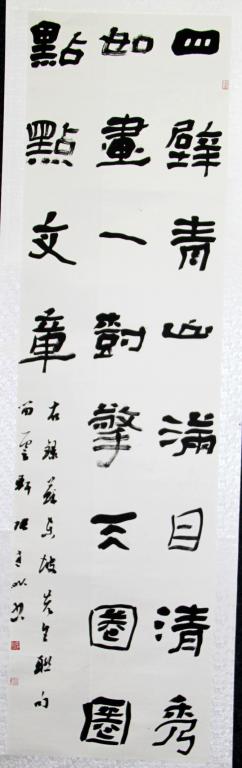 四壁青山滿目清秀
如畫一對擎天圈圈
點點文章
右錄蘇東坡先生聯句